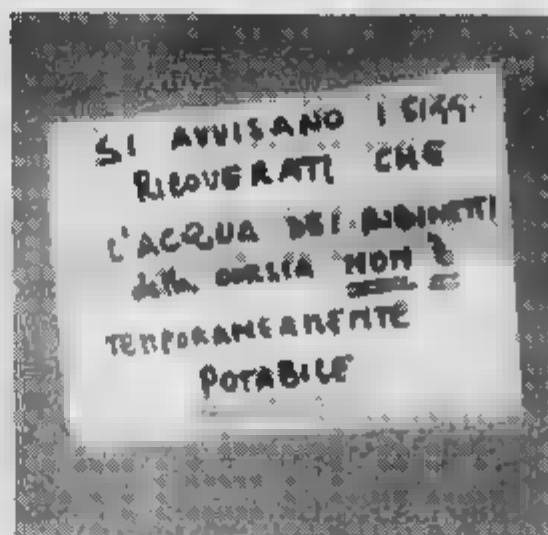 SI AVVISANO I SIGG.
RICOVERATI CHE
L'ACQUA DEI RUBINETTI
della NON È
TEMPORANEAMENTE
POTABILE